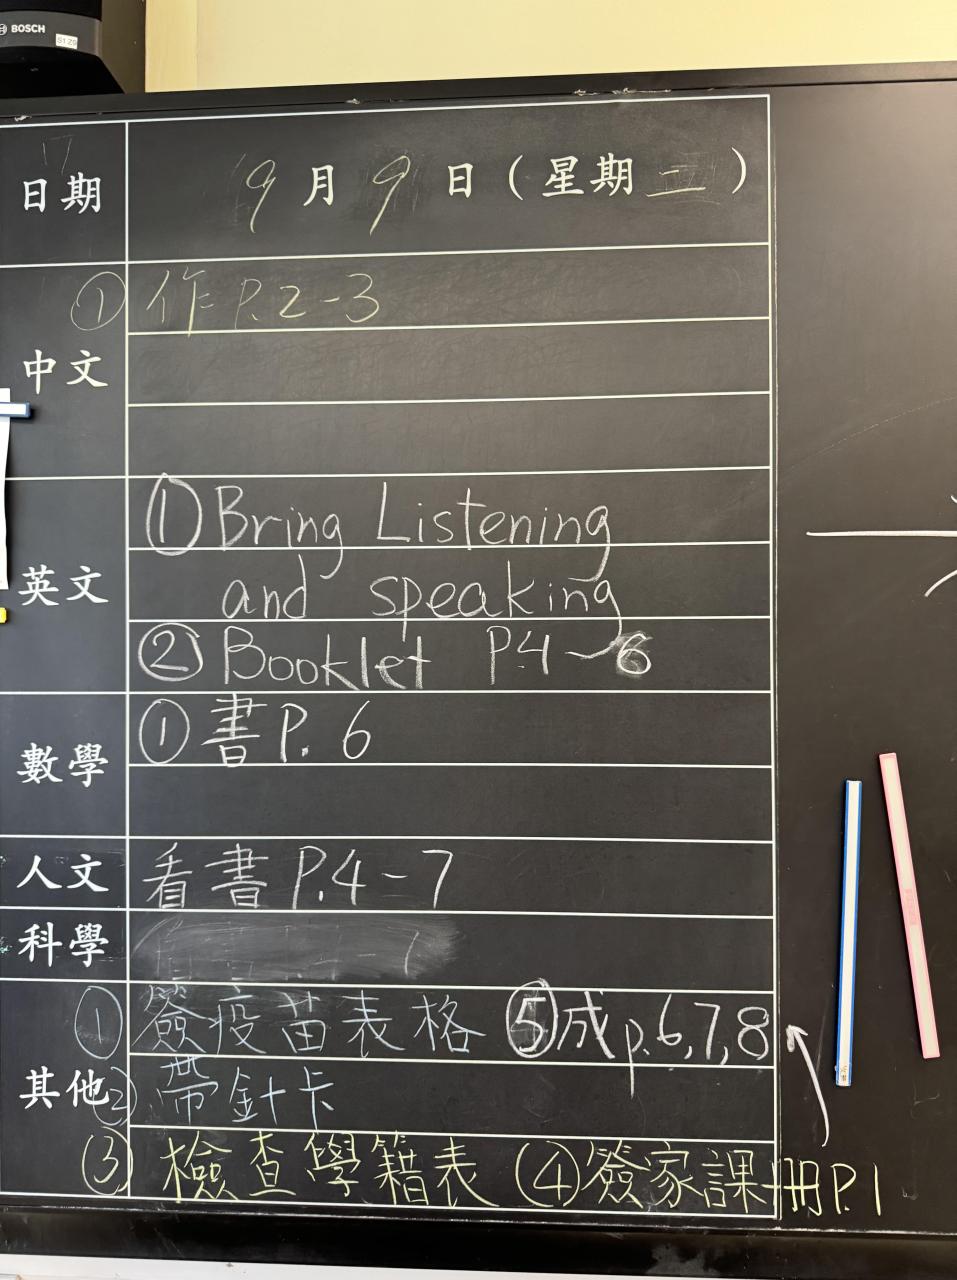 BOSCH
日期 9月9日(星期二)
中文 ① 作P.2-3
英文 ① Bring Listening
and speaking
② Booklet P.4~6
數學 ① 書P.6
人文 看書P.4-7
科學
其他 ① 簽疫苗表格 ⑤成p.6,7,8
② 帶針卡
③ 檢查學籍表 ④簽家課冊P.1